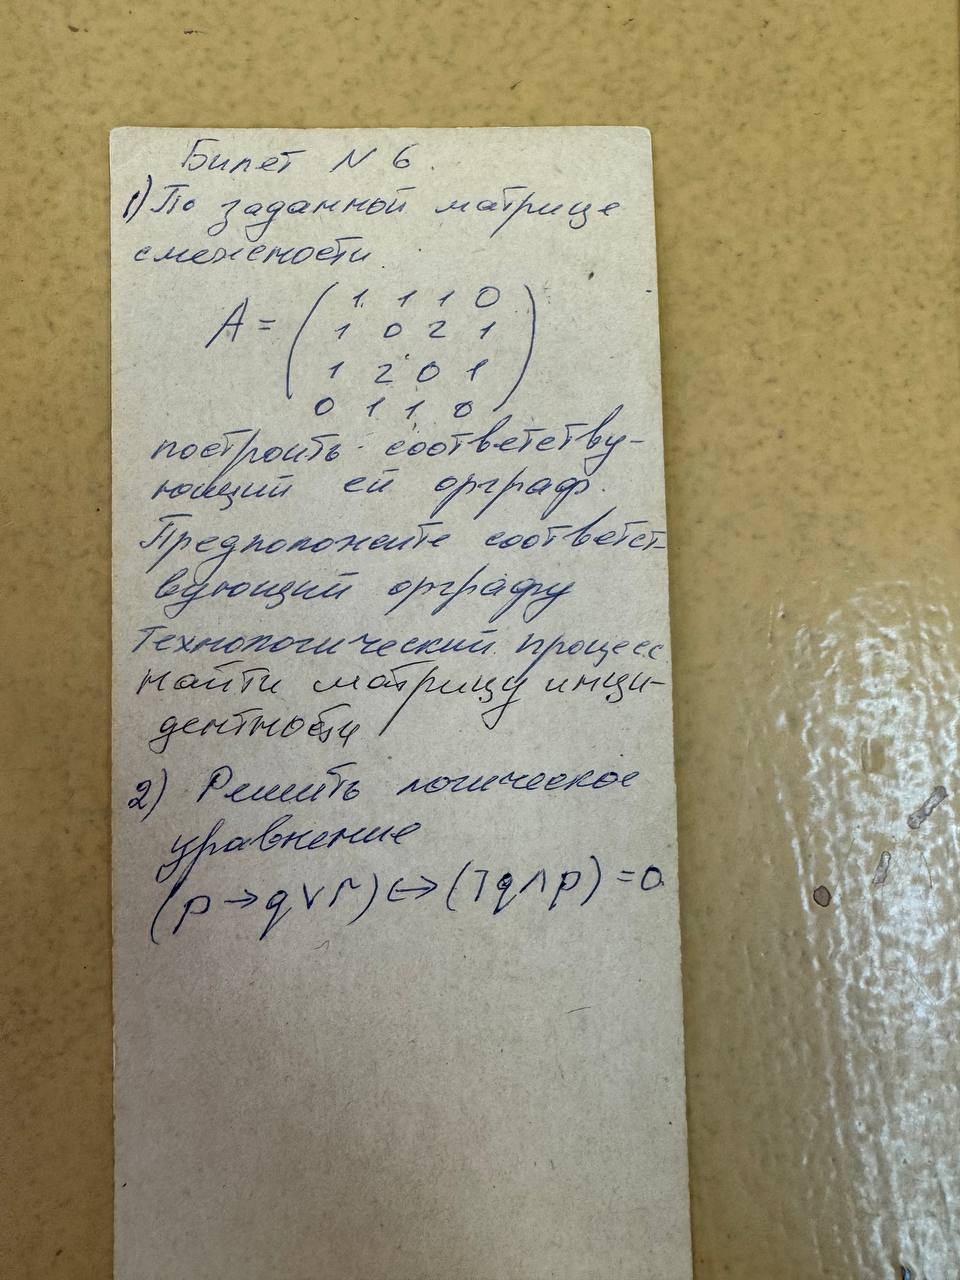 Билет N 6.
1) По заданной матрице
смежности
1 1 1 0
A = ( 1 0 2 1 )
1 2 0 1
0 1 1 0
построить соответству-
ющий ей орграф.
Предположите соответст-
вующий орграфу
технологический процесс
найти матрицу инци-
дентности
2) Решить логическое
уравнение
(p → q ∨ r) ↔ (⌉q ∧ p) = 0.